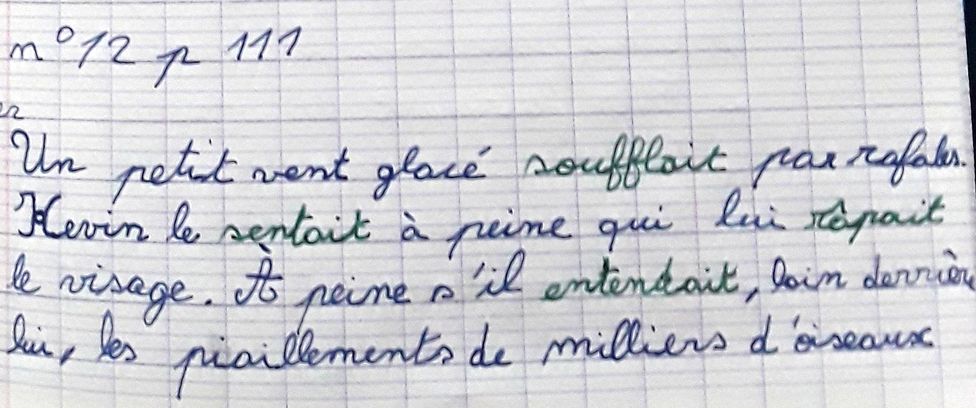 n° 12 p 111
Un petit vent glacé soufflait par rafales.
Kevin le sentait à peine qui lui râpait
le visage. À peine s'il entendait, loin derrière
lui, les piaillements de milliers d'oiseaux